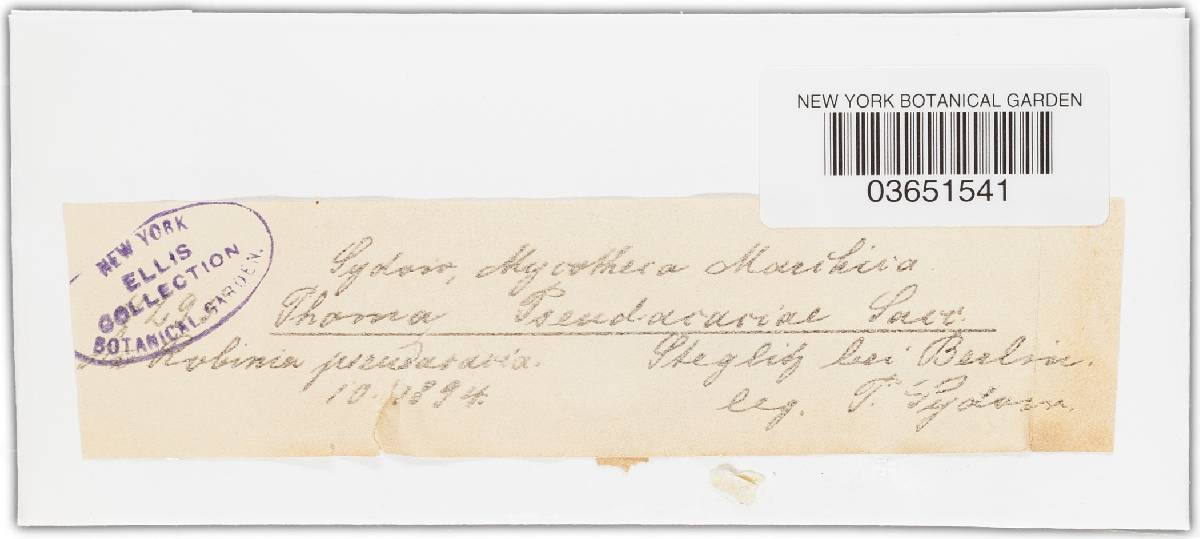 NEW YORK BOTANICAL GARDEN
03651541
NEW YORK
ELLIS
COLLECTION
BOTANICAL GARDEN.
Sydow, Mycotheca Marchica.
Phoma Pseudacaciae Sacc.
Robinia pseudacacia. Steglitz bei Berlin.
10. 1894. leg. P. Sydow.